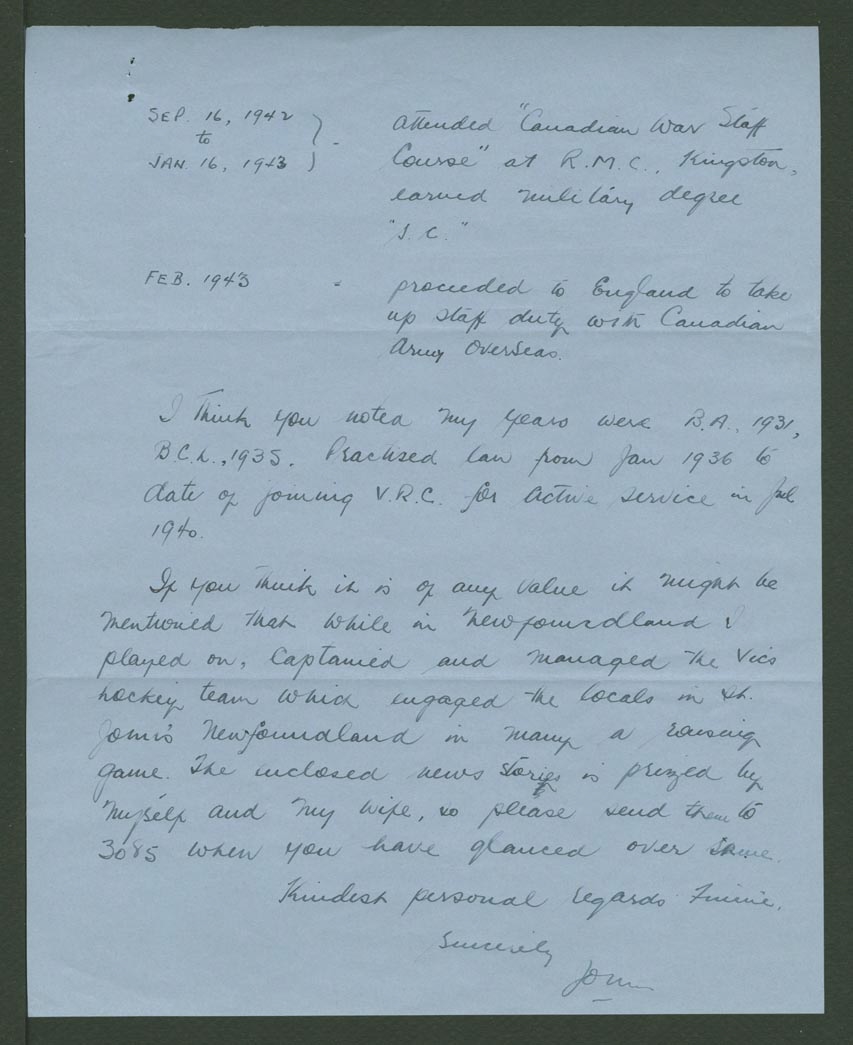 SEP. 16, 1942 to JAN. 16, 1943 } - attended "Canadian War Staff
Course" at R.M.C., Kingston,
earned military degree
"S.C."
FEB. 1943 - proceeded to England to take
up staff duty with Canadian
Army Overseas.
I think you noted my years were B.A., 1931,
B.C.L., 1935. Practised law from Jan 1936 to
date of joining V.R.C. for active service in Jul
1940.
If you think it is of any value it might be
mentioned that while in Newfoundland I
played on, captained and managed the Vics
hockey team which engaged the locals in St.
John's Newfoundland in many a rousing
game. The enclosed news stories is prized by
myself and my wife, so please send them to
3085 when you have glanced over same.
Kindest personal regards
Sincerely
John